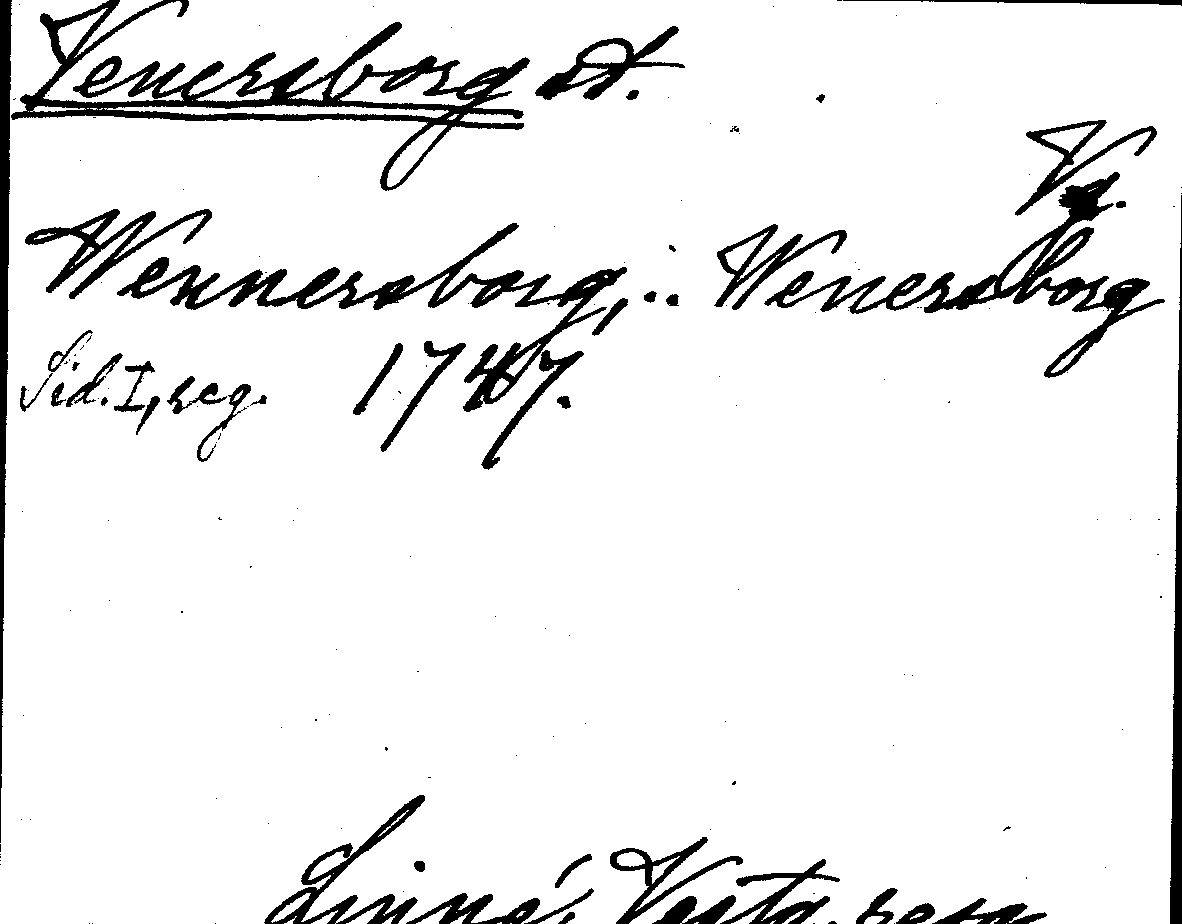 Venersborg st.
Vg.
Wennersborg, .. Wenersborg
Sid. I, reg. 1747.
Linné, Västg. resa